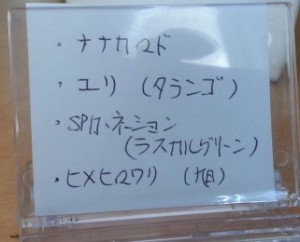 ・ナナカマド
・ユリ (タランゴ)
・SPカーネーション
(ラスカルグリーン)
・ヒメヒマワリ